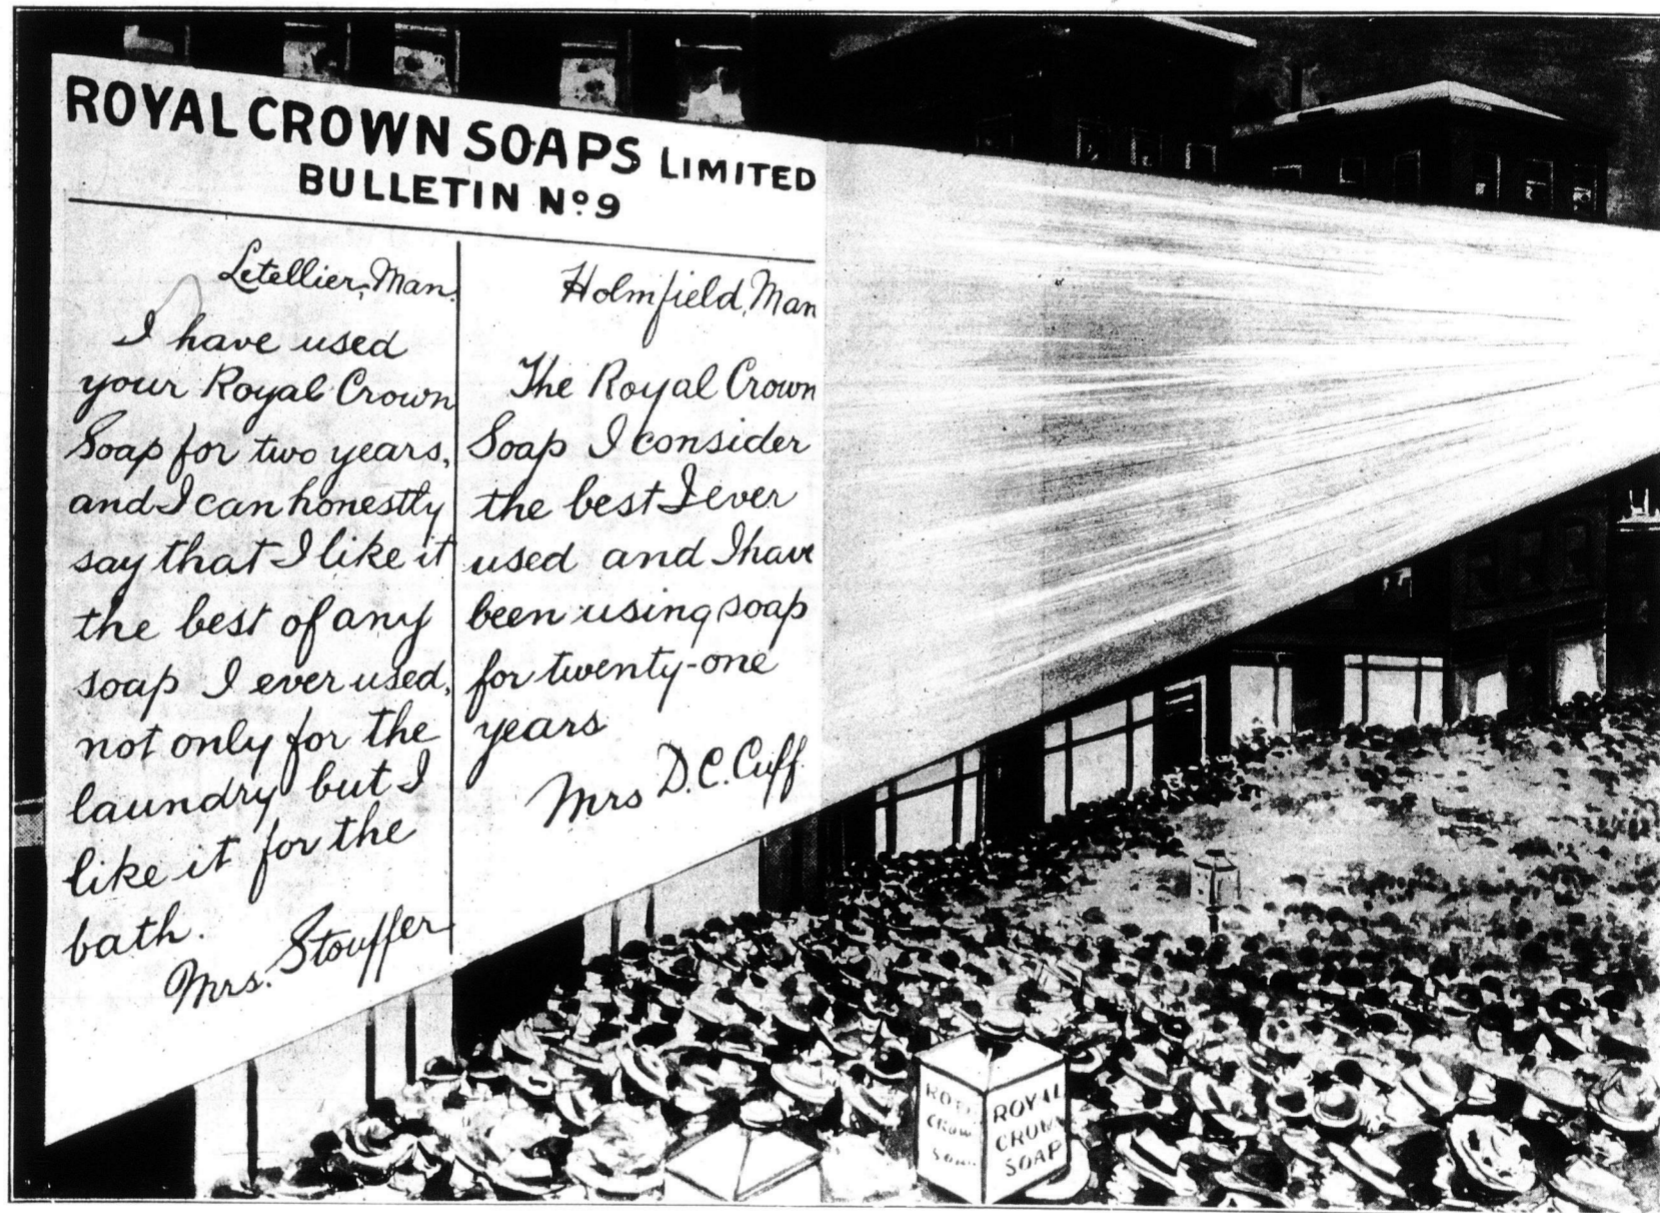 ROYAL CROWN SOAPS LIMITED
BULLETIN Nº 9
Letellier, Man.
I have used
your Royal Crown
Soap for two years,
and I can honestly
say that I like it
the best of any
soap I ever used,
not only for the
laundry but I
like it for the
bath.
Mrs. Stouffer
Holmfield, Man
The Royal Crown
Soap I consider
the best I ever
used and I have
been using soap
for twenty-one
years
Mrs D.C. Cuff.
ROYAL
CROWN
SOAP
ROYAL
CROWN
SOAP